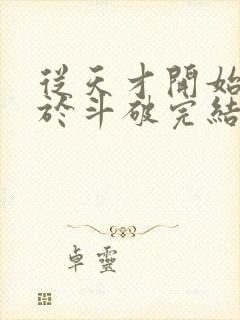 從天才開始
於斗破完結
卓靈